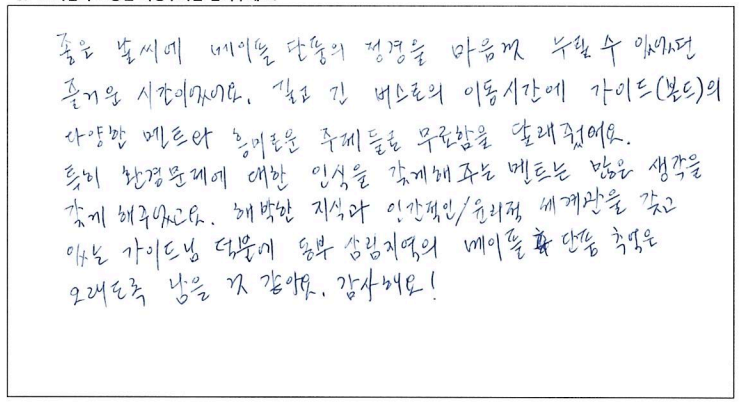 좋은 날씨에 메이플 단풍의 정경을 마음껏 누릴 수 있었던
즐거운 시간이었어요. 길고 긴 버스로의 이동시간에 가이드(본드)의
다양한 멘트와 흥미로운 주제들로 무료함을 달래줬어요.
특히 환경문제에 대한 인식을 갖게해주는 멘트는 많은 생각을
갖게 해주었고요. 해박한 지식과 인간적인/윤리적 세계관을 갖고
있는 가이드님 덕분에 동부 삼림지역의 메이플 단풍 추억은
오래도록 남을 것 같아요. 감사해요!